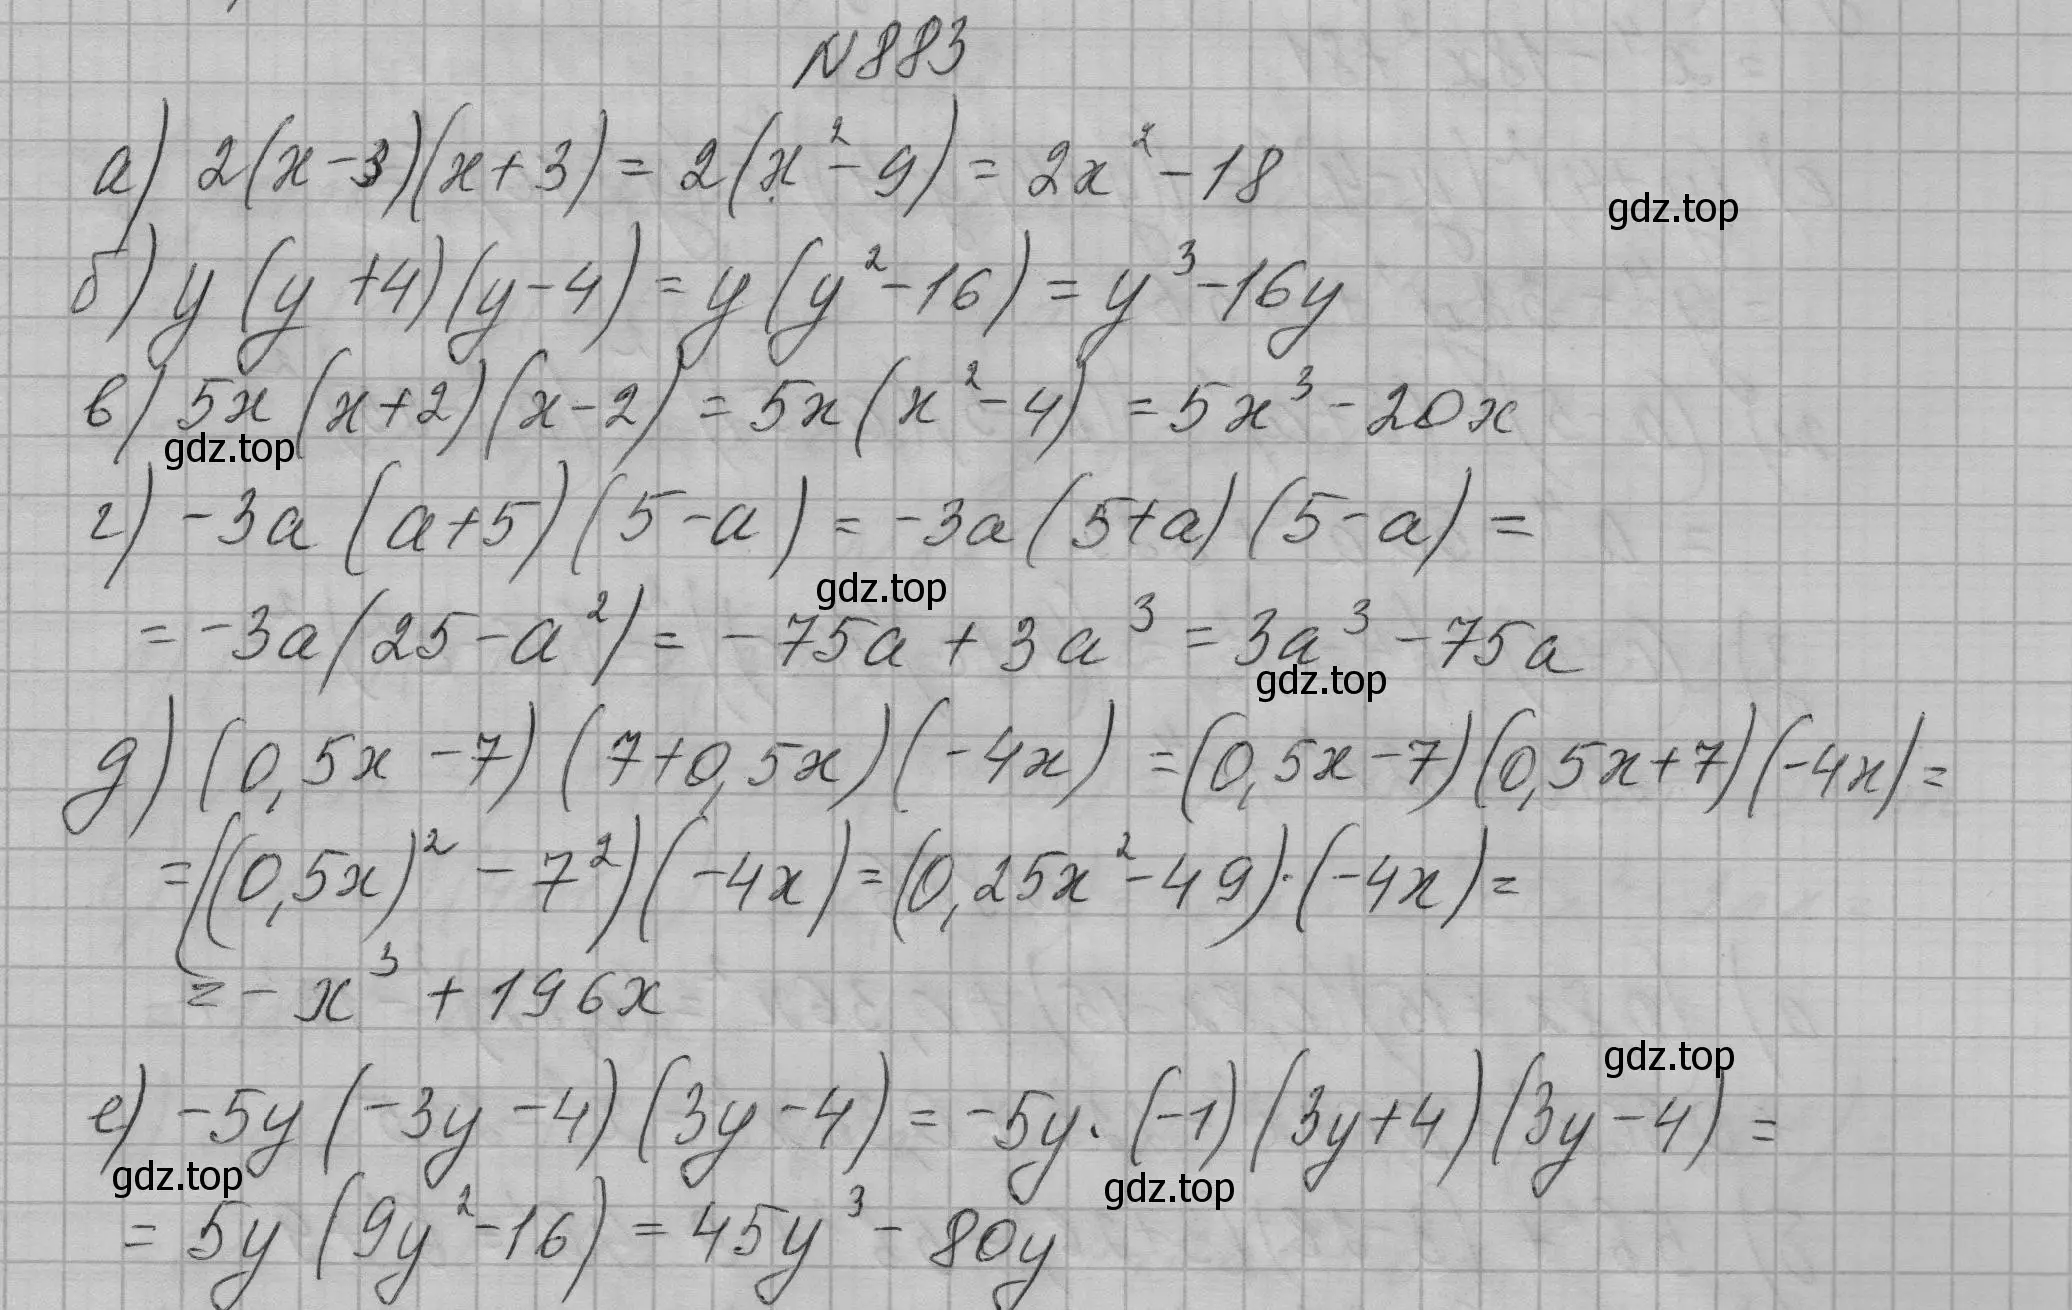 N883
а) 2(x-3)(x+3) = 2(x²-9) = 2x²-18
gdz.top
б) y(y+4)(y-4) = y(y²-16) = y³-16y
в) 5x(x+2)(x-2) = 5x(x²-4) = 5x³-20x
gdz.top
г) -3a(a+5)(5-a) = -3a(5+a)(5-a) =
gdz.top
= -3a(25-a²) = -75a+3a³ = 3a³-75a
gdz.top
д) (0,5x-7)(7+0,5x)(-4x) = (0,5x-7)(0,5x+7)(-4x) =
= ((0,5x)²-7²)(-4x) = (0,25x²-49)·(-4x) =
= -x³+196x
gdz.top
е) -5y(-3y-4)(3y-4) = -5y·(-1)(3y+4)(3y-4) =
gdz.top
gdz.top
= 5y(9y²-16) = 45y³-80y